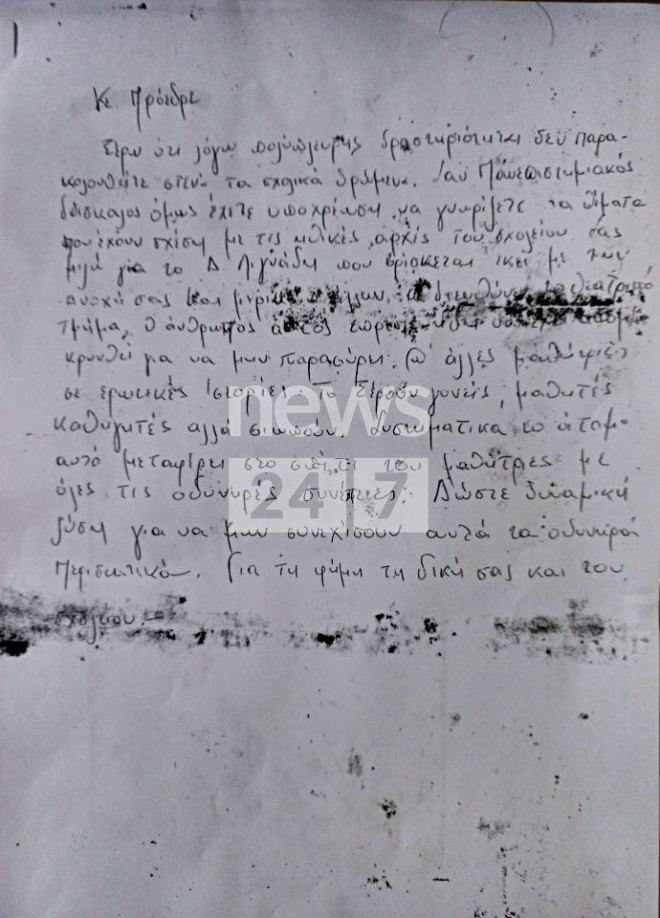 Κε Πρόεδρε
Ξέρω ότι λόγω πολύπλευρης δραστηριότητας δεν παρα-
κολουθείτε στενά τα σχολικά δρώμενα. Σαν Πανεπιστημιακός
δάσκαλος όμως έχετε υποχρέωση να γνωρίζετε τα θέματα
που έχουν σχέση με τις ηθικές αρχές του σχολείου σας
μιλώ για το Δ. Λιγνάδη που βρίσκεται εκεί με την
ανοχή σας και μερικών άλλων. διευθύνει το θεατρικό
τμήμα. Ο άνθρωπος αυτός
κρυνθεί για να μην παρασύρει @ άλλες μαθήτριες
σε ερωτικές ιστορίες. Το ξέρουν γονείς, μαθητές
καθηγητές αλλά σιωπούν. Συστηματικά το άτομο
αυτό μεταφέρει στο σπίτι του μαθήτρες με
όλες τις οδυνηρές συνέπειες. Δώστε δυναμική
λύση για να μην συνεχίσουν αυτά τα οδυνηρά
περιστατικά. Για τη φήμη τη δική σας και του
σχολείου.-
news
24 7